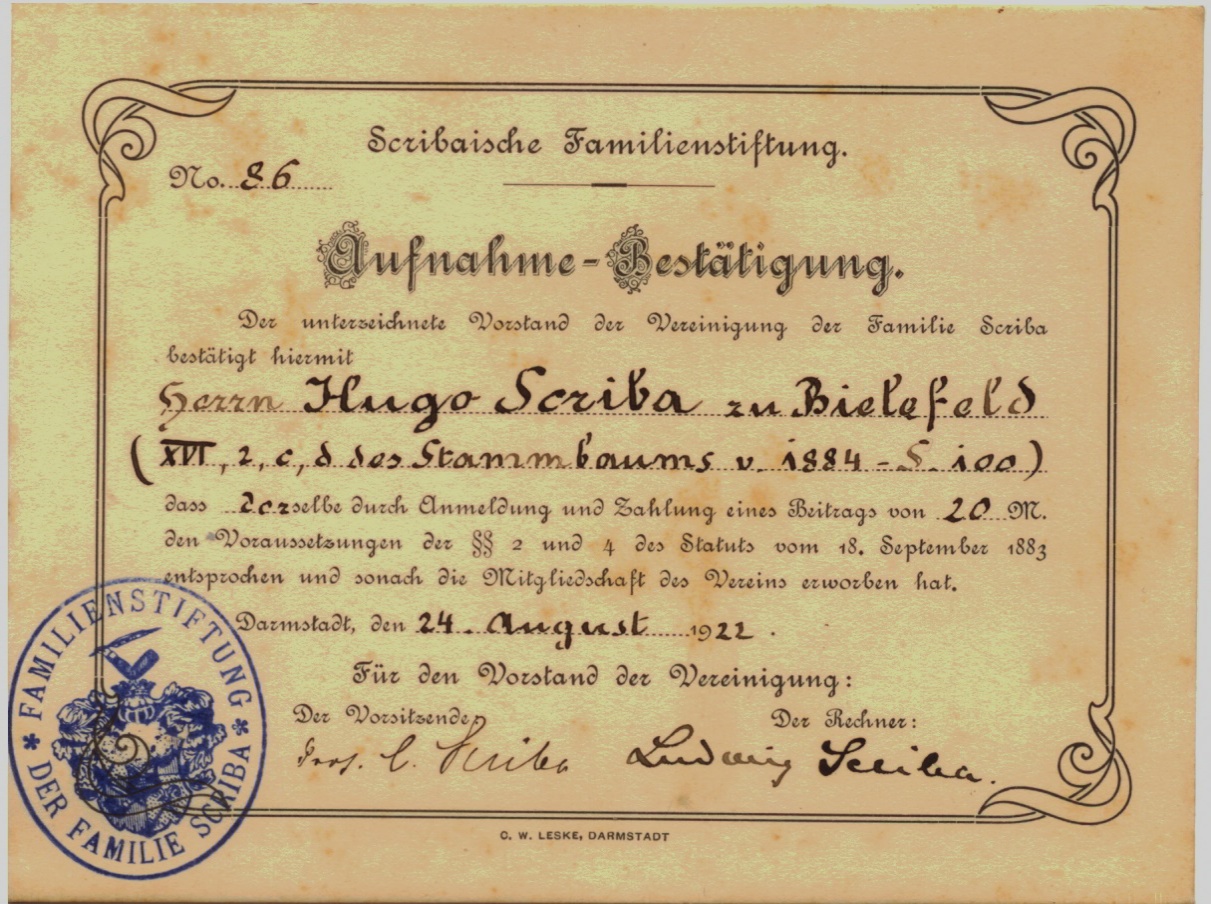 Scribaische Familienstiftung.
No. 86
Aufnahme-Bestätigung.
Der unterzeichnete Vorstand der Vereinigung der Familie Scriba
bestätigt hiermit
Herrn Hugo Scriba zu Bielefeld
(XVI, 2, c, d des Stammbaums v. 1884 - S. 100)
dass derselbe durch Anmeldung und Zahlung eines Beitrags von 20 M.
den Voraussetzungen der §§ 2 und 4 des Statuts vom 18. September 1883
entsprochen und sonach die Mitgliedschaft des Vereins erworben hat.
Darmstadt, den 24. August 1922.
Für den Vorstand der Vereinigung:
Der Vorsitzende Der Rechner:
Prof. C. Scriba Ludwig Scriba.
* FAMILIENSTIFTUNG * DER FAMILIE SCRIBA
C. W. LESKE, DARMSTADT